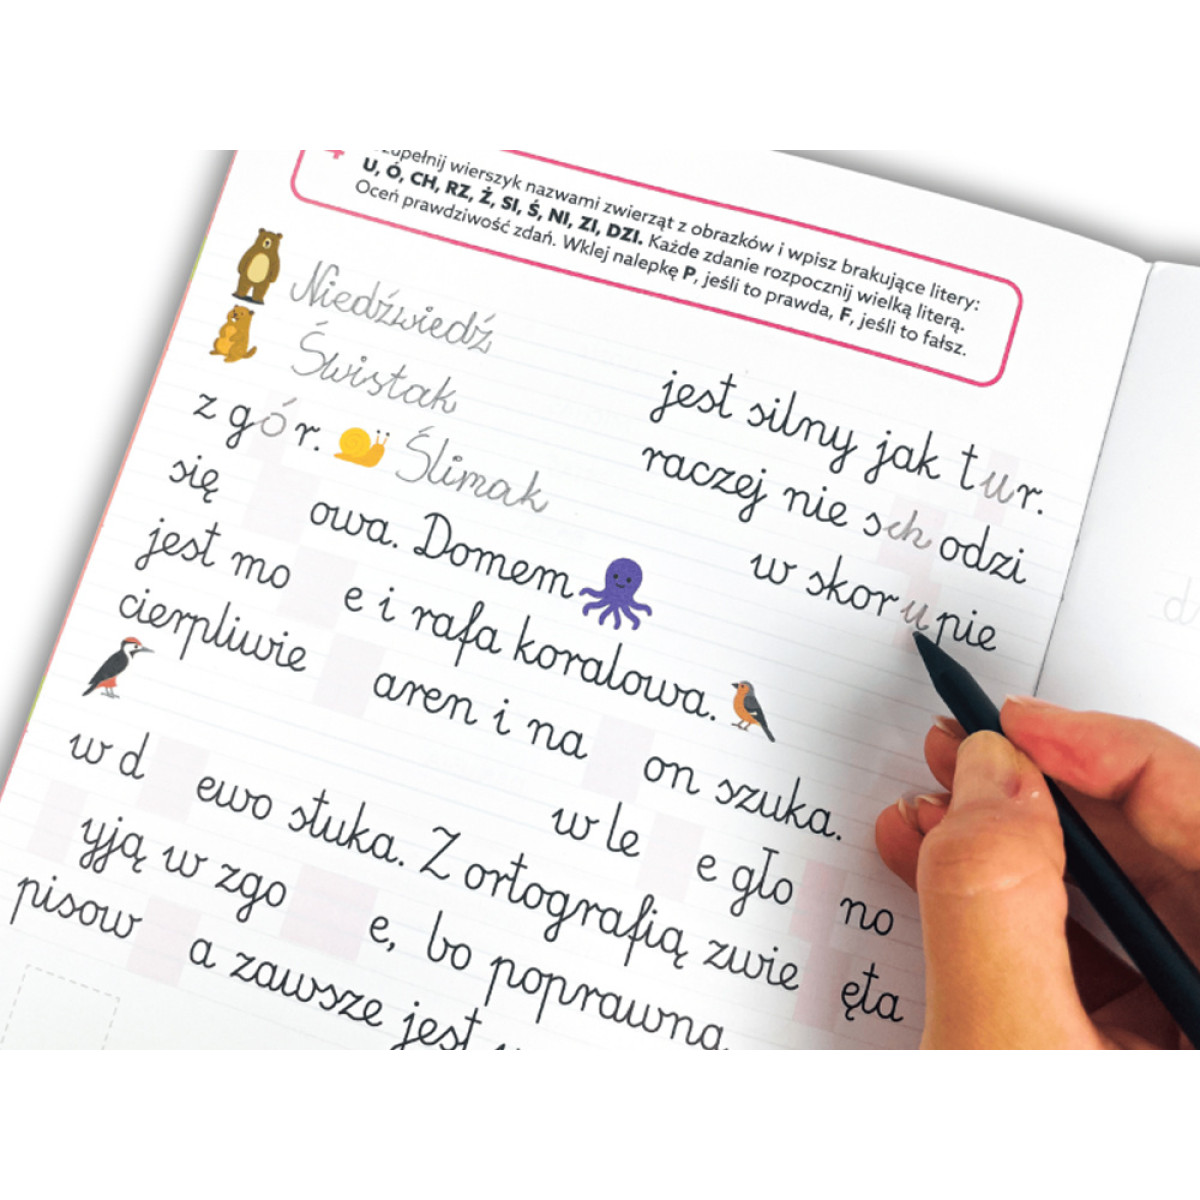 4 zupełnij wierszyk nazwami zwierząt z obrazków i wpisz brakujące litery:
U, Ó, CH, RZ, Ż, SI, Ś, NI, ZI, DZI. Każde zdanie rozpocznij wielką literą.
Oceń prawdziwość zdań. Wklej nalepkę P, jeśli to prawda, F, jeśli to fałsz.
Niedźwiedź jest silny jak tur.
Świstak raczej nie schodzi
z gór. Ślimak w skorupie
się owa. Domem
jest mo e i rafa koralowa.
cierpliwie aren i na on szuka.
w le e gło no
w d ewo stuka. Z ortografią zwie ęta
yją w zgo e, bo poprawna
pisow a zawsze jest